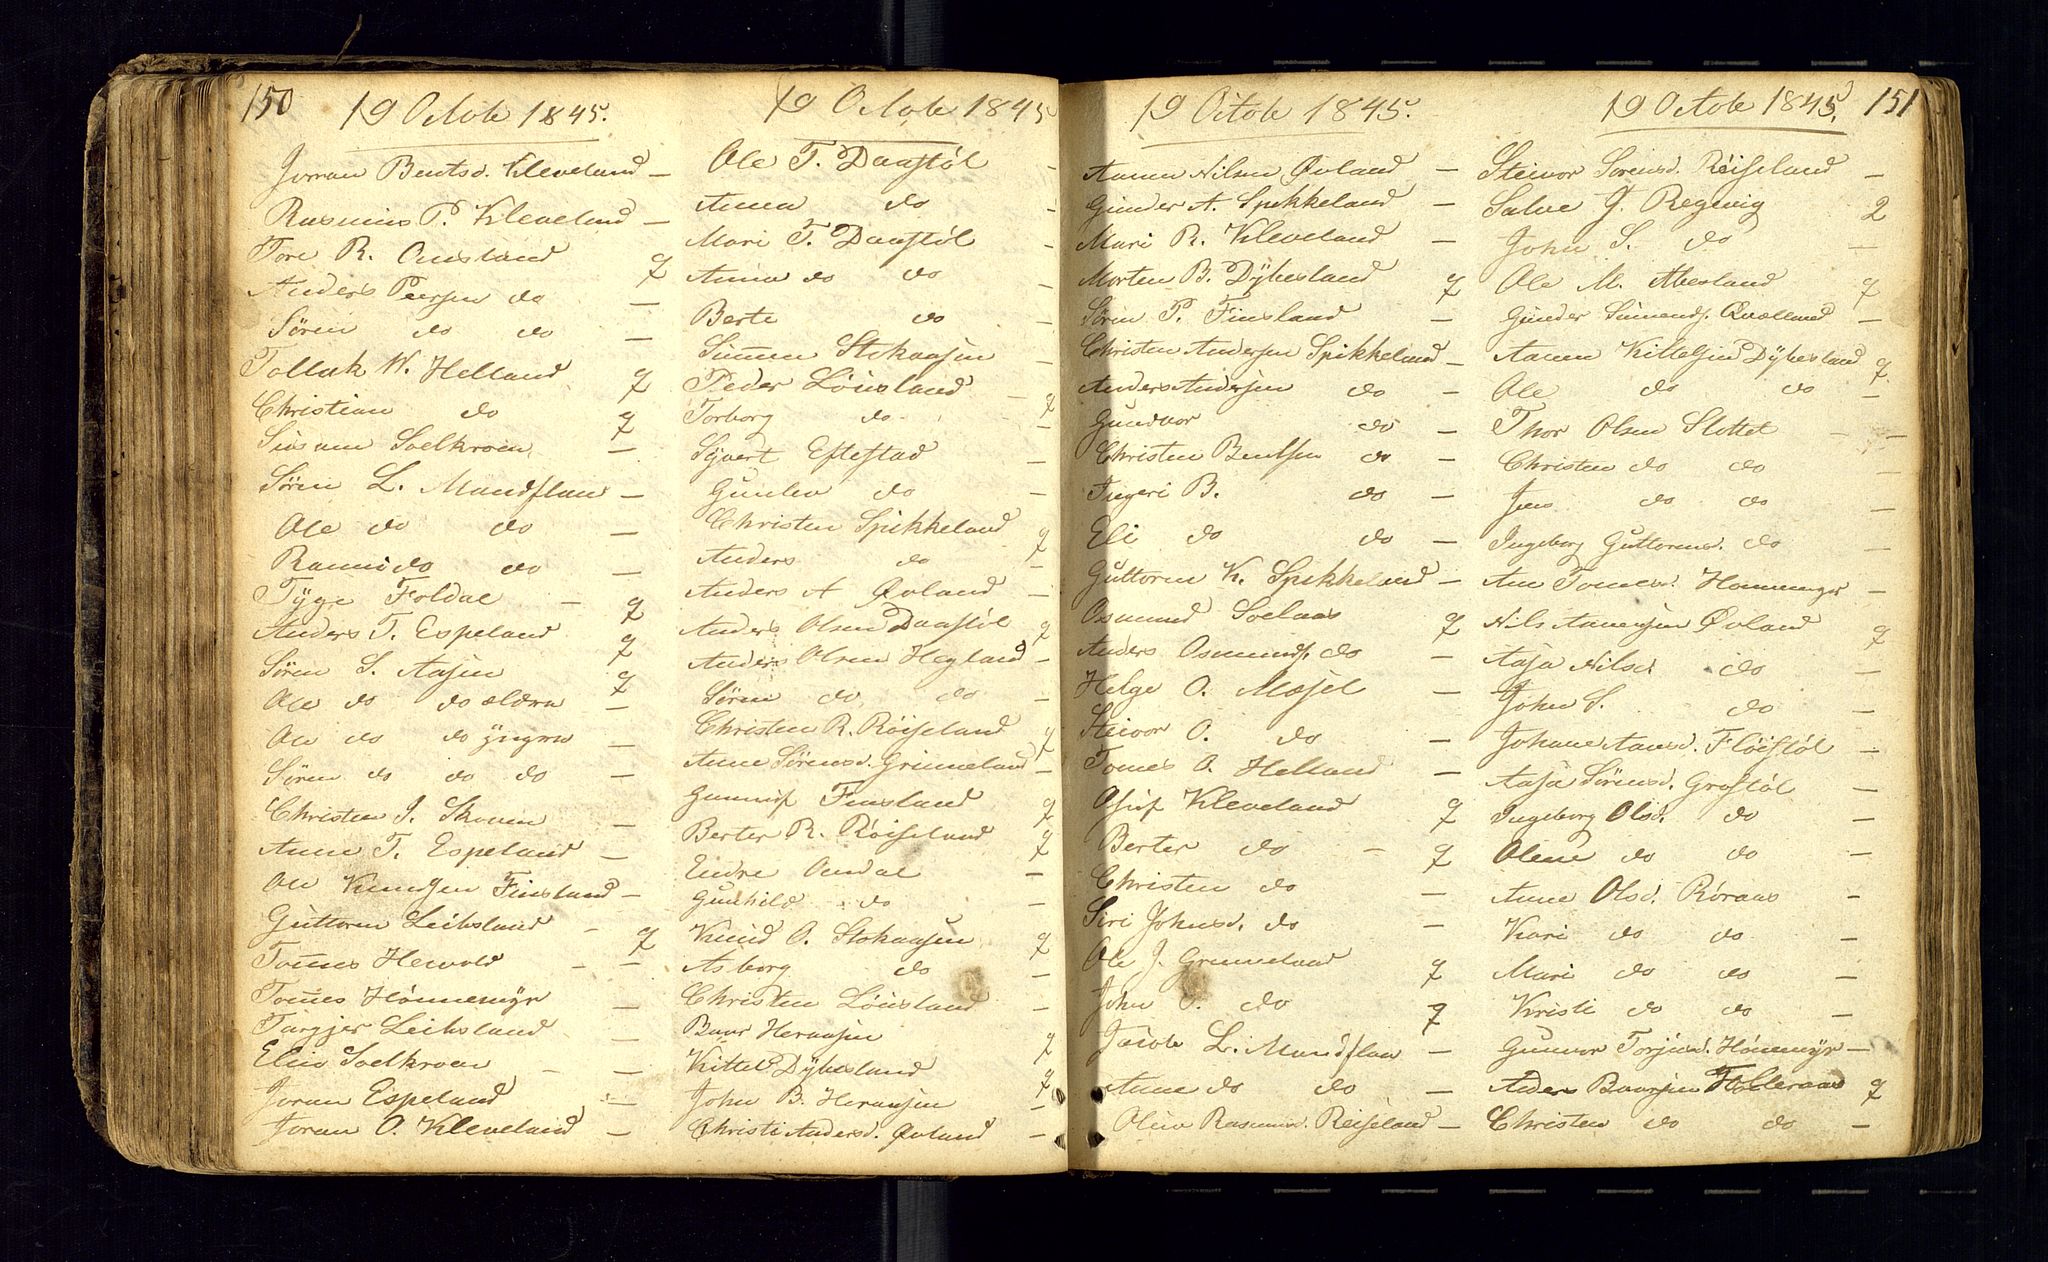 150
19 Octobe 1845.
Jorran Bentsd. Kleveland —
Rasmus P. Kleveland —
Tore R. Ousland q
Anders Peersen do —
Sören do do —
Tollak W. Helland q
Christian do q
Soelkroen —
Sören L. Mandflaa —
Ole do do —
Ranni do do —
Tÿge Foldal — q
Anders T. Espeland q
Sören S. Aasen q
Ole do do ældre —
Ole do do ÿngre —
Sören do do do —
Christen J. Skoven —
Anne T. Espeland —
Ole Knudsen Finsland —
Guttorm Leiksland — q
Tomes Hewold — —
Tomes Hönnemÿr —
Targjer Leiksland —
Elen Soelkroen — —
Joran Espeland —
Joran O. Kleveland —
19 Octobe 1845
Ole T. Daastöl —
Anna do —
Mari T. Daastöl —
Anna do do —
Berte do —
Simen Stokaasen —
Peder Lönsland — q
Torborg do —
Sÿvert Eftestad —
Gunlev do —
Christen Spikkeland q
Anders do —
Anders A Øvland —
Anders Olsen Daastöl q
Anders Olsen Hegland —
Sören do do —
Christen R. Röiseland q
Anne Sörensd. Grimeland —
Gunnuf Finsland q
Berter R. Röiseland q
Endre Omdal —
Gunhild do —
Knud O. Stokaasen q
Asborg do —
Christen Lönsland —
Baar Heraasen q
Kittel Dÿbesland q
John B. Heraasen —
Christi Andersd. Øvland —
19 Octobe 1845.
Aanen Nilsen Øvland —
Gunder A. Spikkeland —
Mari R. Kleveland —
Morten B. Dÿbesland q
Sören P. Finsland —
Christen Andersen Spikkeland —
Anders Andersen do —
Gundvor do —
Christen Bentsen do —
Ingeri B. do —
Eli do do —
Guttorm K. Spikkeland —
Osmund Soelaas q
Anders Osmunds. do —
Helge O. Mæsel —
Steivor O. do —
Tomes O. Helland —
Osuf Kleveland q
Berter do — q
Christen do —
Siri Johnsd. do —
Ole J. Grimeland q
John O. do q
Jacob L. Mandflaa —
Anne do do —
Olene Rasmusd. Reiseland —
19 Octobe 1845. 151
Steivor Sörensd. Röiseland —
Salve J. Regevig 2
John S. do —
Ole M. Abesland q
Gunder Simends. Qvælland —
Aanen Kittelsen Dÿbesland q
Ole do do —
Thor Olsen Slottet — —
Christen do do —
Jens do do —
Ingeborg Guttormsd. do —
Ane Tomesd. Honnemyr —
Nils Aanensen Øvland q
Aasa Nilsd. do —
John S. do —
Johane Aanesd. Flöistöl —
Aasa Sörensd. Grostöl —
Ingeborg Olsd. do —
Olene do do —
Anne Olsd. Röraas —
Kari do do —
Mari do do —
Kristi do do —
Gunvor Torjusd. Hönnemÿr —
Anders Baarsen Holleraas q
Christen do do —